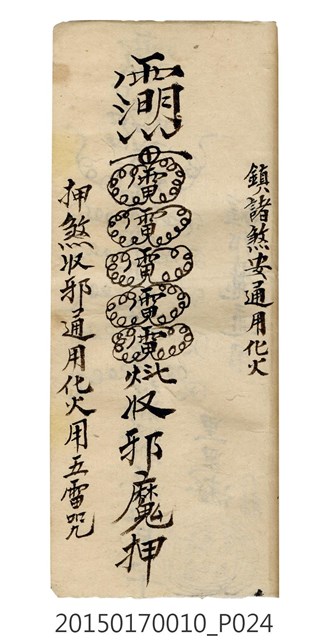 鎮諸煞安通用化火
雷
雷
雷
雷
雷
收邪魔押
押煞收邪通用化火用五雷咒
20150170010_P024